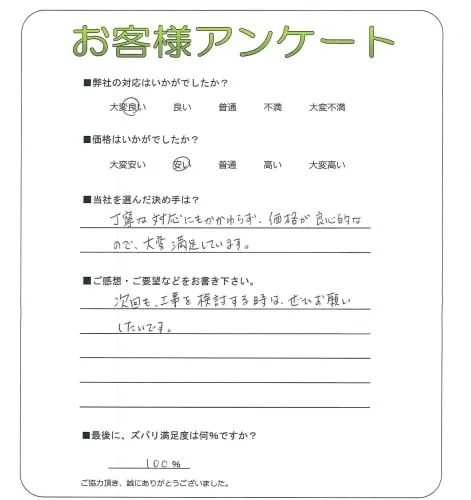 お客様アンケート
■弊社の対応はいかがでしたか？
大変良い 良い 普通 不満 大変不満
■価格はいかがでしたか？
大変安い 安い 普通 高い 大変高い
■当社を選んだ決め手は？
丁寧な対応にもかかわらず、価格が良心的な
ので、大変満足しています。
■ご感想・ご要望などをお書き下さい。
次回も、工事を検討する時は、ぜひお願い
したいです。
■最後に、ズバリ満足度は何％ですか？
100％
ご協力頂き、誠にありがとうございました。